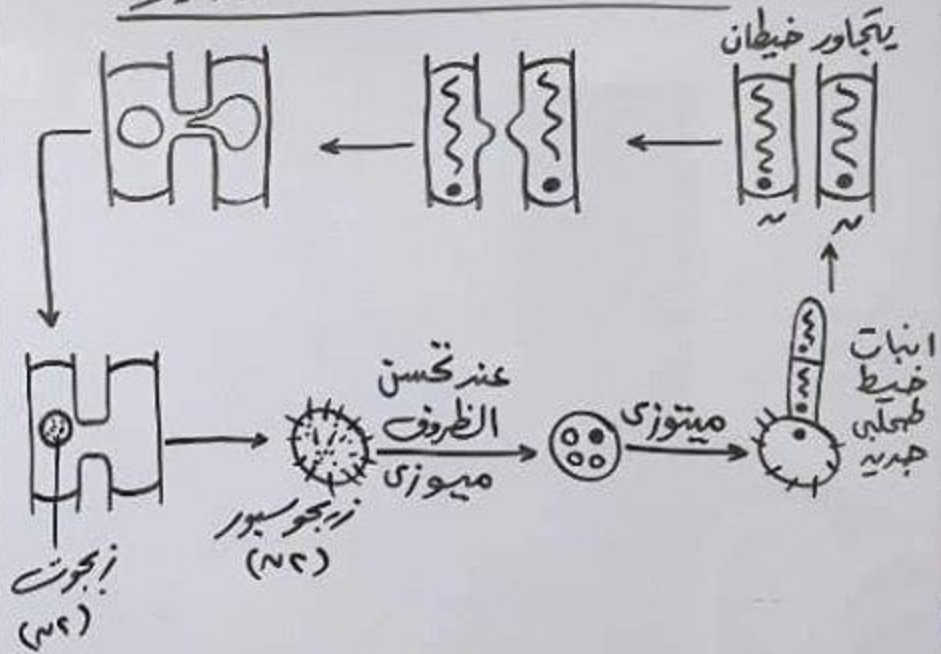 يتجاور خيطان
ن ن
انبات
خيط
طحلبى
جديد
عند تحسن
الظروف
ميوزى
ميتوزى
زيجوسبور
(٢ن)
زيجوت
(٢ن)